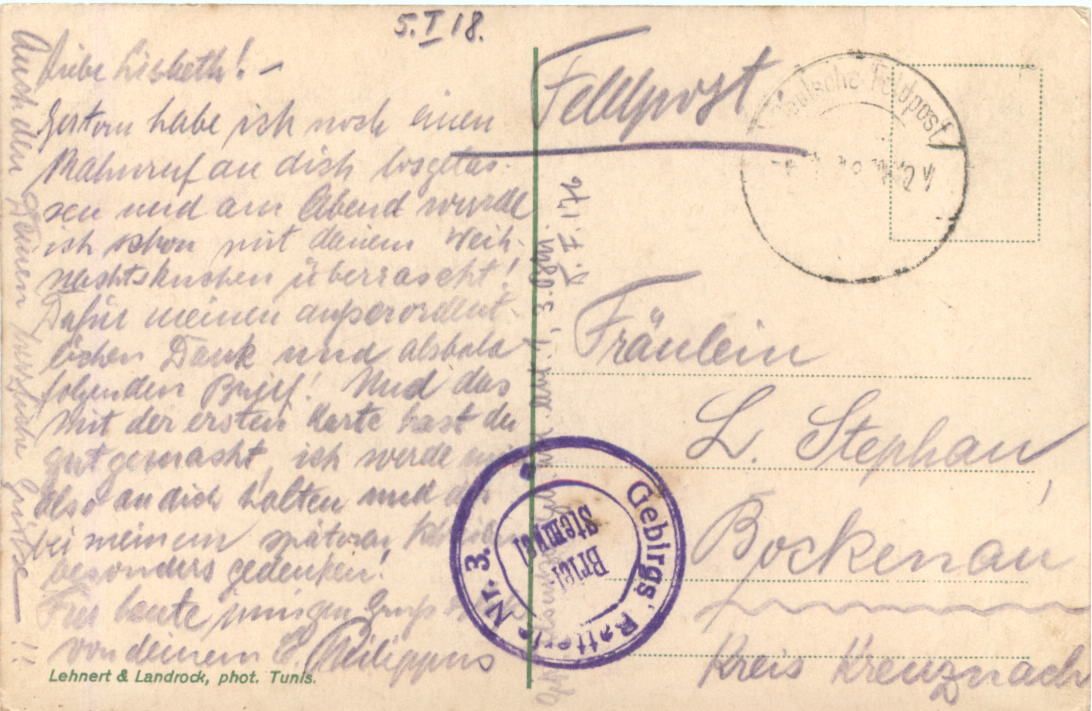 5.I 18.
Liebe Lisbeth! –
Gestern habe ich noch einen
Mahnruf an dich losgelas-
sen und am Abend wurde
ich schon mit deinem Weih-
nachtskuchen überrascht!
Dafür meinen außerordent-
lichen Dank und alsbald
folgenden Brief! Und das
mit der ersten Karte hast du
gut gemacht, ich werde
also an dich halten und
bei meinem späteren
besonders gedenken!
Für heute innigen Gruß
von deinem Philippus
Auch den Deinen herzliche Grüße!!
Lehnert & Landrock, phot. Tunis.
Feldpost
Deutsche Feldpost
Fräulein
L. Stephan
Bockenau
Kreis Kreuznach
Gebirgs' Batterie Nr. 3.
Brief
Stempel